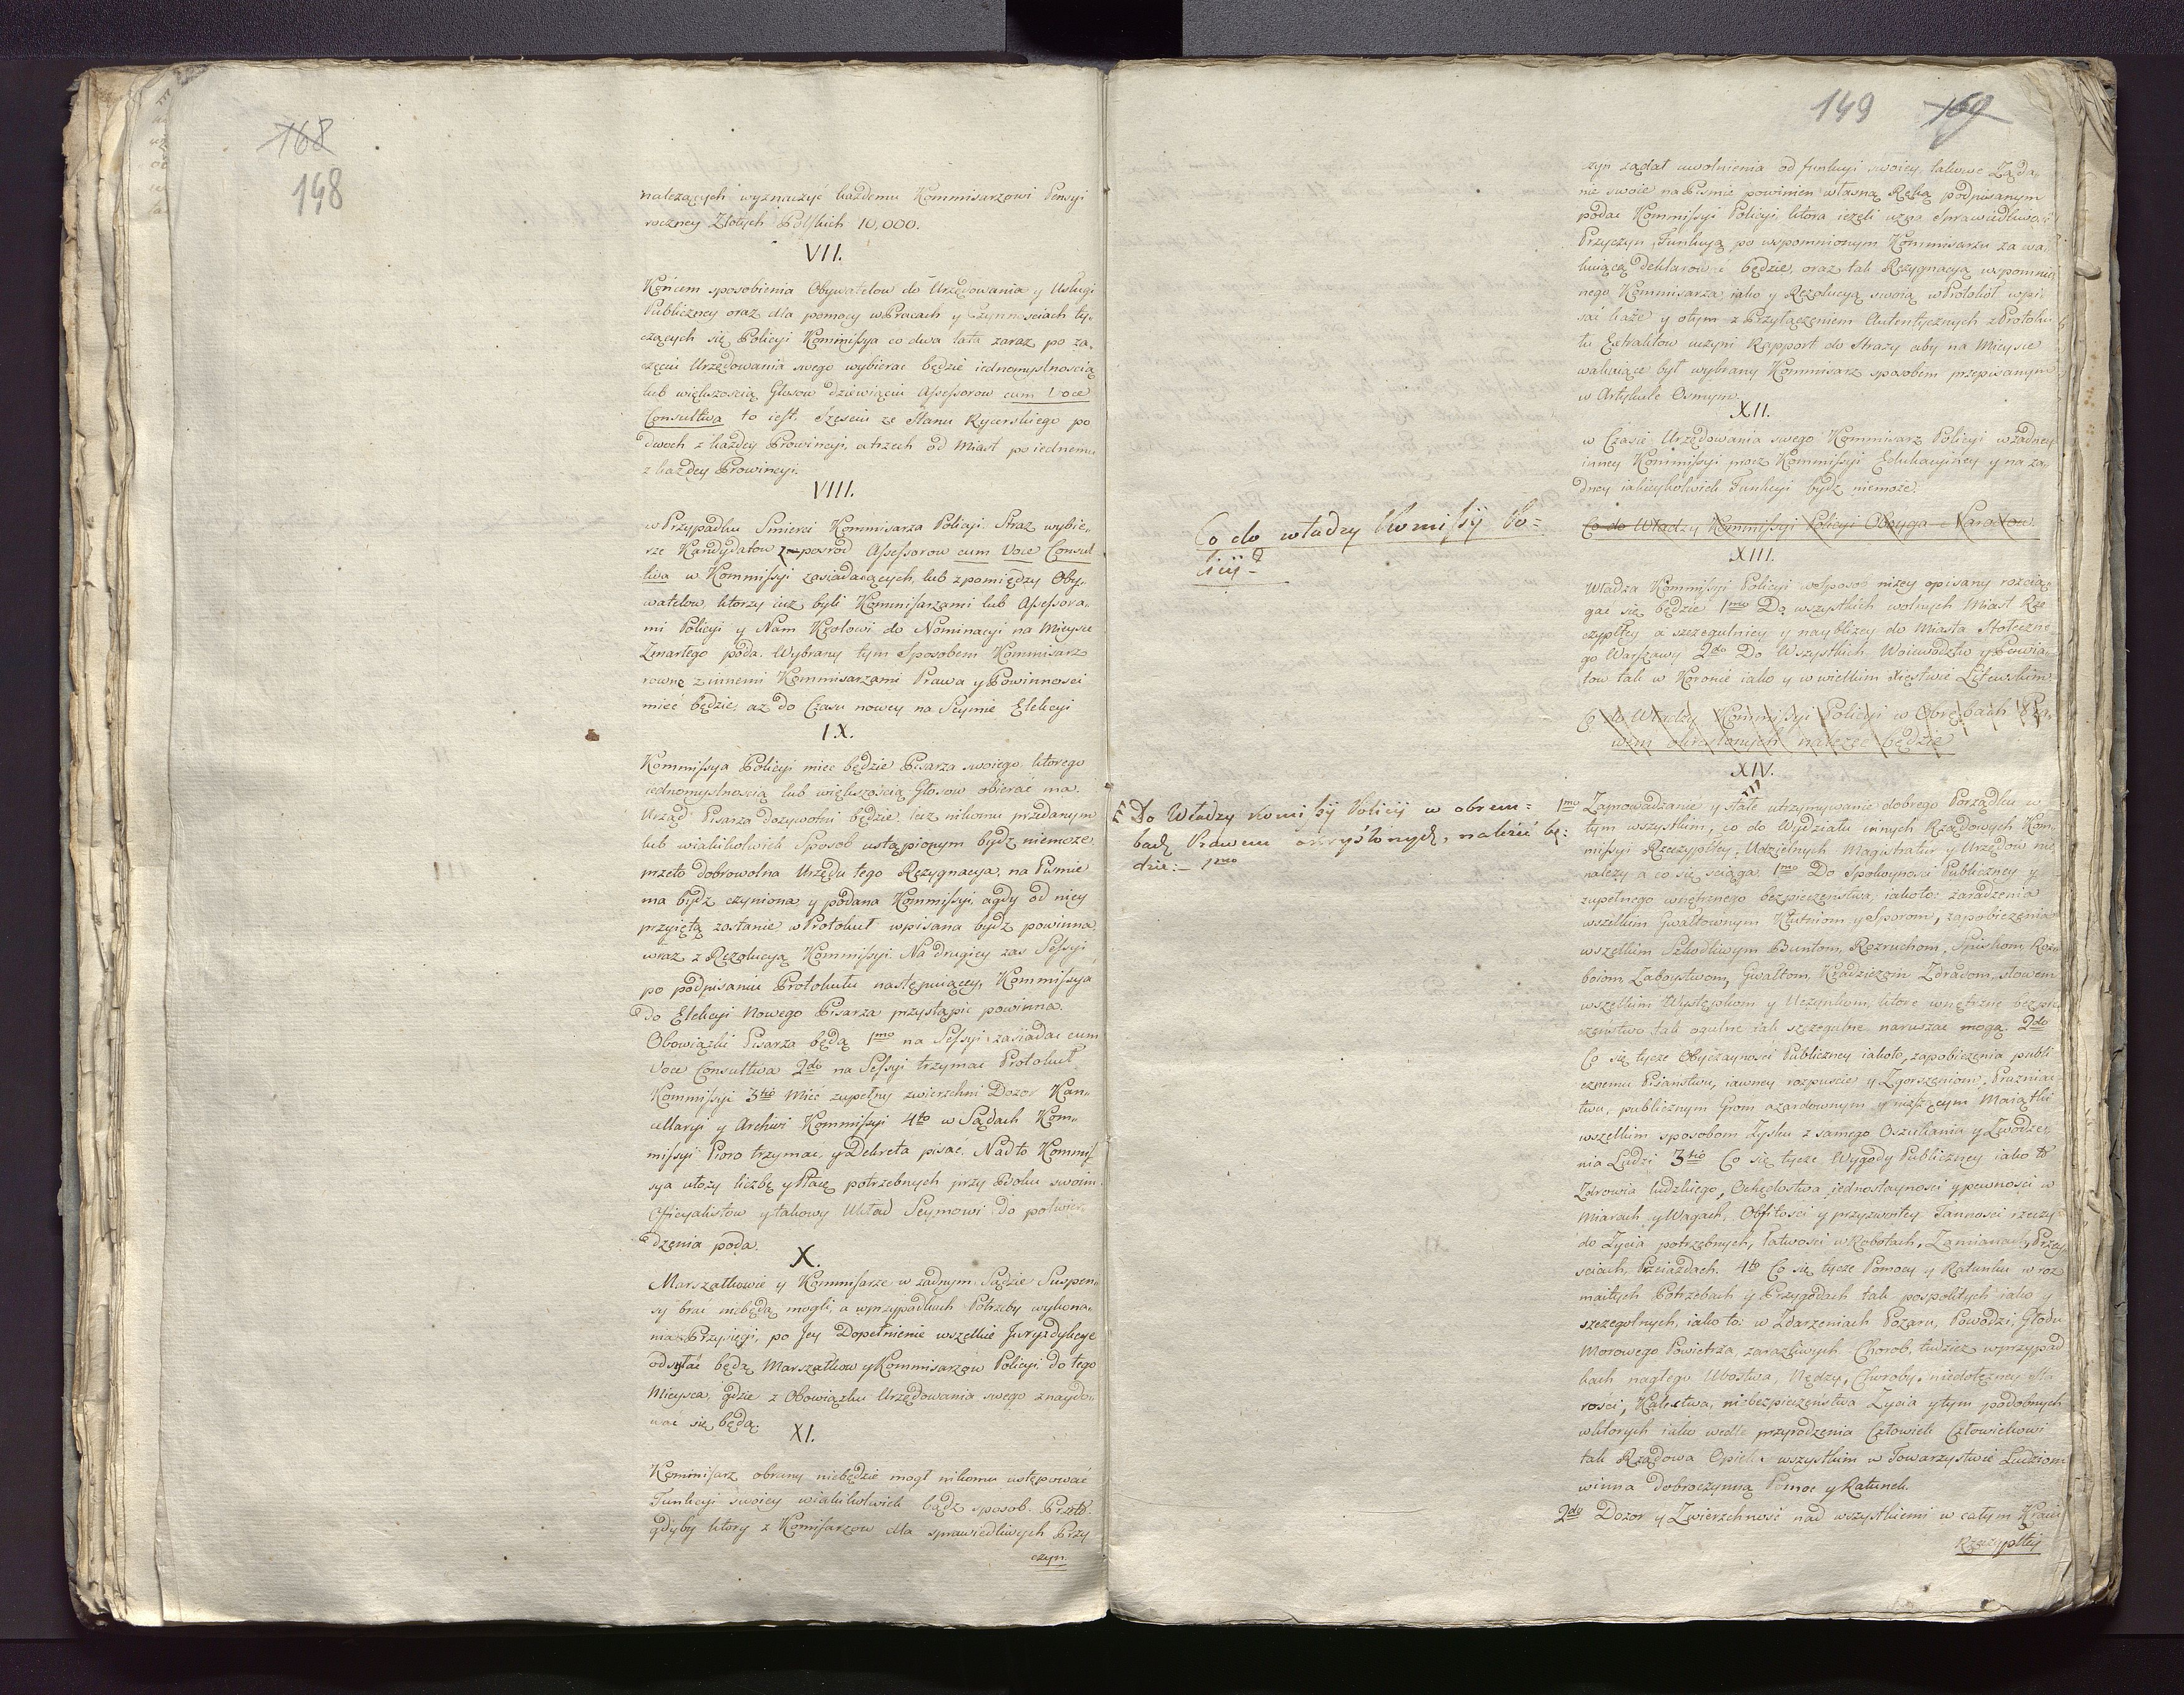 168
148
należących wyznaczyć każdemu Kommisarzowi Pensyi
roczney Złotych Polskich 10,000.
VII.
Końcem sposobienia Obywatelow do Urzędowania y Usługi
Publiczney oraz dla pomocy w Pracach y Czynnosciach ty„
czących się Policyi Kommissya co dwa lata zaraz po za„
częciu Urzędowania swego wybierac będzie iednomyslnoscią
lub większoscią Głosow dziewięciu Assessorow cum Voce
Consultiva to iest. Szesciu ze Stanu Rycerskiego po
dwoch z każdey Prowincyi, a trzech od Miast po iednemu
z każdey Prowincyi.
VIII.
w Przypadku Smierci Kommisarza Policyi. Straz wybie„
rze Kandydatow z posrod Assessorow cum Voce Consul
tiva w Kommissyi zasiadaiących, lub z pomiędzy Oby„
watelow, ktorzy iuz byli Kommisarzami lub Assessora„
mi Policyi y Nam Krolowi do Nominacyi na Mieysce
Zmarłego poda. Wybrany tym Sposobem Kommisarz
rowne z innemi Kommisarzami Prawa y Powinnosci
mieć będzie, az do Czasu nowey na Seymie Elekcyi
IX.
Kommissya Policyi miec będzie Pisarza swoiego, ktorego
iednomyslnoscią lub większoscią Głosow obierać ma.
Urząd Pisarza dozywotni będzie, lecz nikomu przedanym
lub wiakikolwiek Sposob ustąpionym bydz niemoze
przeto dobrowolna Urzędu tego Rezygnacya, na Pismie
ma bydz czyniona y podana Kommissyi, a gdy od niey
przyiętą zostanie w Protokuł wpisana bydz powinna
wraz z Rezolucyą Kommissyi. Na drugiey zas Sessyi
po podpisaniu Protokułu następuiącey, Kommissya
do Elekcyi Nowego Pisarza przystąpic powinna.
Obowiązki Pisarza będą 1mo na Sessyi zasiadac cum
Voce Consultiva 2do na Sessyi trzymac Protokuł
Kommissyi 3tio Mieć zupełny zwierzchni Dozor Kan„
cellaryi y Archiwi Kommissyi 4to w Sądach Kom„
missyi Pioro trzymac, y Dekreta pisać. Nad to Kommis
sya ułoży liczbę y Płacę potrzebnych przy Boku swoim
Officyalistow y takowy Układ Seymowi do potwier„
dzenia poda.
X.
Marszałkowie y Kommisarze w zadnym Sądzie Suspen„
sy brać niebędą mogli, a w przypadkach Potrzeby wykona„
nia Przysięgi, po Jey Dopełnienie wszelkie Juryzdykcye
odsyłać będą Marszałkow y Kommisarzow Policyi do tego
Mieysca, gdzie z Obowiązku Urzędowania swego znaydo„
wać się będą.
XI.
Kommisarz obrany niebędzie mogł nikomu ustępować
Funkcyi swoiey wiakikolwiek bądz sposob. Przeto
gdyby ktory z Komisarzow dla sprawiedliwych Przy
czyn.
149 169
czyn ządał uwolnienia od funkcyi swoiey, takowe Ząda„
nie swoie na Pismie powinien własną Ręką podpisanym
podac Kommissyi Policyi, ktora iezeli uzna Sprawiedliwość
Przyczyn, Funkcyą po wspomnionym Kommisarzu za wa„
kuiącą deklarować będzie, oraz tak Rezygnacyą wspomnio
nego Kommisarza iako y Rezolucyą swoią w Protokół wpi
sać każe y o tym z Przyłączeniem Autentycznych z Protoku
łu Extraktow uczyni Rapport do Strazy aby na Mieysce
wakuiące był wybrany Kommisarz sposobem przepisanym
w Artykule Osmym.
XII.
w Czasie Urzędowania swego Kommisarz Policyi w żadney
inney Kommissyi procz Kommissyi Edukacyiney y na ża„
dney iakieykolwiek Funkcyi bydz niemoże.
Co do władzy Komissyi Po=
licyi
Co do Władzy Kommissyi Policyi Oboyga Narodow.
XIII.
Władza Kommissyi Policyi w Sposob nizey opisany rozcią
gać się będzie 1mo Do wszystkich wolnych Miast Rze
czypltey a szczegulniey y naybliżey do Miasta Stołeczne
go Warszawy 2do Do Wszystkich Woiewodztw y Powia
tow tak w Koronie iako y w wielkim Xięstwie Litewskim
Co do Władzy Kommissyi Policyi w Obrębach Pra„
wem okreslonych należeć będzie
XIV.
Do Władzy Komissyi Policyi w obrem=
bach Prawem okryślonych, należeć bę=
dzie:– 1mo
1mo Zaprowadzanie y stałe utrzymywanie dobrego Porządku w
tym wszystkim, co do Wydziału innych Rządowych Kom„
missyi Rzeczypltey, Udzielnych Magistratur y Urzędow nie
nalezy a co się sciąga. 1mo Do Spokoyności Publiczney y
zupełnego wnętrznego bezpieczenstwa, iako to: zaradzenia
wszelkim Gwałtownym Kłutniom y Sporom, zapobieżenia
wszelkim Szkodliwym Buntom, Rozruchom, Spiskom, Roz„
boiom, Zaboystwom, Gwałtom, Kradzieżom Zdradom, słowem
wszelkim Występkom y Uczynkom, ktore wnętrzne bezpie
czenstwo tak ogulne iak szczegulne naruszac mogą. 2do
Co się tycze Obyczayności Publiczney iakoto, zapobieżenia publi
cznemu Pianstwu, iawney rozpuscie y Zgorszeniom, Prozniac
twu, publicznym Grom azardownym y niszczącym Maiątki
wszelkim sposobom Zysku z samego Oszukania y Zwodze„
nia Ludzi 3tio Co się tycze Wygody Publiczney iako to
Zdrowia ludzkiego, Ochędostwa iednostaynosci y pewności w
Miarach y Wagach, Obfitości y przyzwoitey Tanności rzeczy
do Życia potrzebnych, łatwosci w Robotach, Zamianach, Przey
sciach, Przeiazdach. 4to Co się tycze Pomocy y Ratunku w roz
maitych Potrzebach y Przygodach tak pospolitych iako y
szczegolnych, iako to: w Zdarzeniach Pozaru, Powodzi, Głodu
Morowego Powietrza, zarazliwych Chorob, tudziez w przypad
kach nagłego Ubostwa, Nędzy, Choroby, niedołęzney Sta
rości, Kalectwa, niebezpieczenstwa Zycia y tym podobnych
w ktorych iako wedle przyrodzenia Człowiek Człowiekowi
tak Rządowa Opieka wszystkim w Towarzystwie Ludziom
winna dobroczynną Pomoc y Ratunek.
2do Dozor y Zwierzchność nad wszystkiemi w całym Kraiu
Rzeczypltey